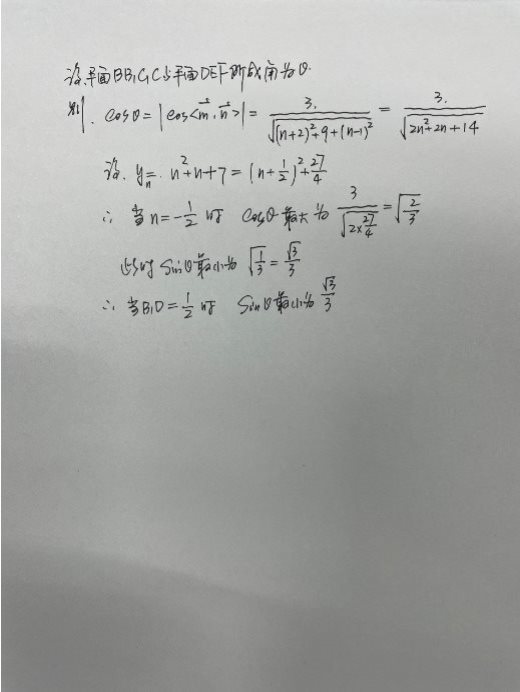 设平面BB₁C₁C与平面DEF所成角为θ.
则. cosθ=|cos<m⃗,n⃗>|= 3. / √((n+2)²+9+(n-1)²) = 3. / √(2n²+2n+14)
设. yₙ=. n²+n+7=(n+1/2)²+27/4
∴ 当n=-1/2时 cosθ最大为 3/√(2×27/4) =√(2/3)
此时 sinθ最小为 √(1/3)=√3/3
∴ 当B₁D=1/2时 sinθ最小为 √3/3